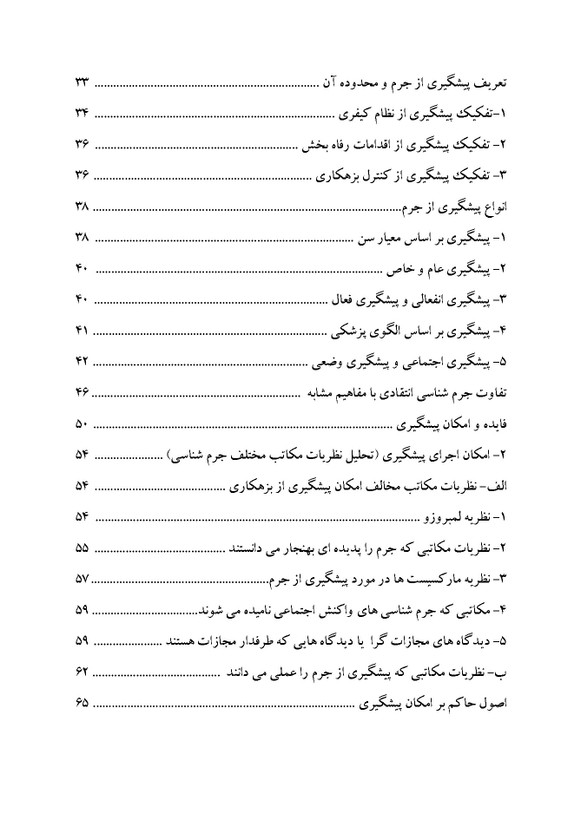 تعریف پیشگیری از جرم و محدوده آن ........................................................................ ۳۳
۱-تفکیک پیشگیری از نظام کیفری ............................................................................. ۳۴
۲- تفکیک پیشگیری از اقدامات رفاه بخش ................................................................. ۳۶
۳- تفکیک پیشگیری از کنترل بزهکاری ...................................................................... ۳۶
انواع پیشگیری از جرم................................................................................................... ۳۸
۱- پیشگیری بر اساس معیار سن ................................................................................... ۳۸
۲- پیشگیری عام و خاص ............................................................................................ ۴۰
۳- پیشگیری انفعالی و پیشگیری فعال ........................................................................... ۴۰
۴- پیشگیری بر اساس الگوی پزشکی ........................................................................... ۴۱
۵- پیشگیری اجتماعی و پیشگیری وضعی ..................................................................... ۴۲
تفاوت جرم شناسی انتقادی با مفاهیم مشابه ................................................................... ۴۶
فایده و امکان پیشگیری ................................................................................................ ۵۰
۲- امکان اجرای پیشگیری (تحلیل نظریات مکاتب مختلف جرم شناسی) ...................... ۵۴
الف- نظریات مکاتب مخالف امکان پیشگیری از بزهکاری .......................................... ۵۴
۱- نظریه لمبروزو ........................................................................................................ ۵۴
۲- نظریات مکاتبی که جرم را پدیده ای بهنجار می دانستند .......................................... ۵۵
۳- نظریه مارکسیست ها در مورد پیشگیری از جرم......................................................... ۵۷
۴- مکاتبی که جرم شناسی های واکنش اجتماعی نامیده می شوند.................................. ۵۹
۵- دیدگاه های مجازات گرا یا دیدگاه هایی که طرفدار مجازات هستند ...................... ۵۹
ب- نظریات مکاتبی که پیشگیری از جرم را عملی می دانند ......................................... ۶۲
اصول حاکم بر امکان پیشگیری .................................................................................... ۶۵